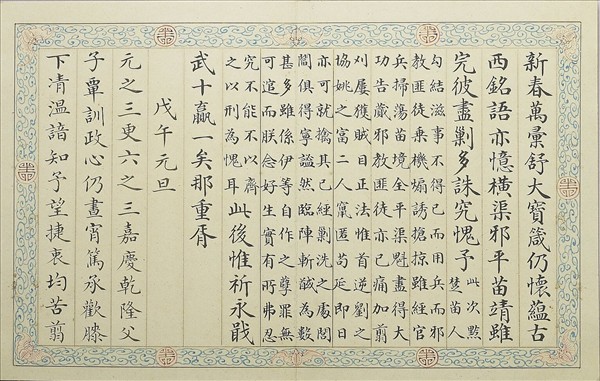 新春萬彙舒大寶箴仍懷蘊古
西銘語亦憶橫渠邪平苗靖雖
完彼盡剿多誅究愧予
此次黔
楚苗人
勾結滋事不得已而用兵而邪
教匪徒乘機煽誘搶掠雖經官
兵掃蕩苗境全平渠魁盡得大
功告蕆邪教匪徒亦已痛加翦
刈屢獲賊目正法惟首逆劉之
協姚之富二人竄匿苟延即日
亦可就擒其已經剿洗之處閭
閻俱得寧謐然臨陣斬馘為數
甚多雖係伊等自作之孽罪無
可逭而朕念好生實有所弗忍
究不能不以齊
之以刑為愧耳
此後惟祈永戢
武十贏一矣那重胥
戊午元旦
元之三更六之三嘉慶乾隆父
子覃訓政心仍晝宵篤承歡膝
下凊溫諳知予望捷衷均苦翦